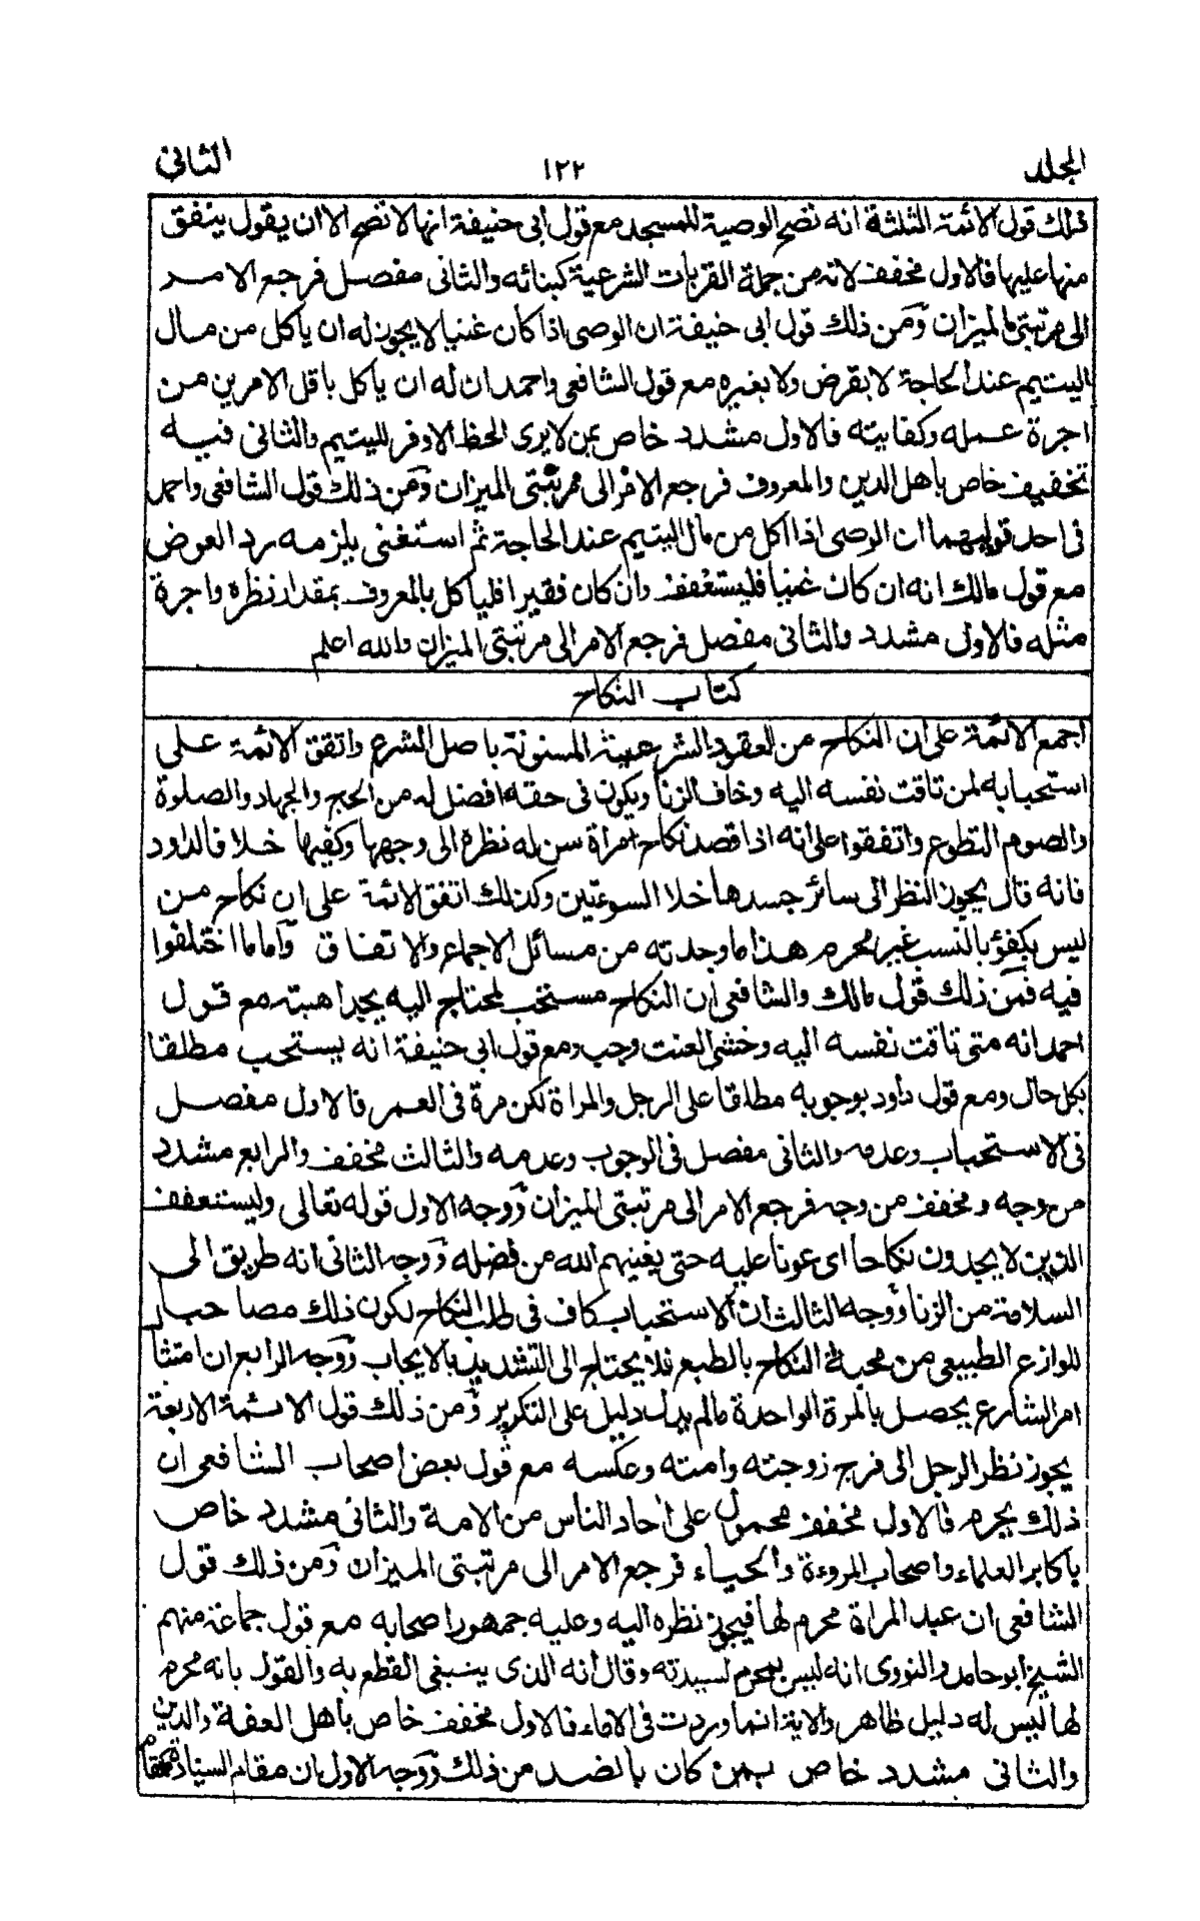 المجلد ١٢٢ الثاني
ذلك قول الائمة الثلثة انه تصح الوصية للمسجد مع قول ابى حنيفة انها لا تصح الا ان يقول ينفق
منها عليها فالاول مخفف لانه من جملة القربات الشرعية كبنائه والثانى مفصل فرجع الامر
الى مرتبتى الميزان ومن ذلك قول ابى حنيفة ان الوصى اذا كان غنيا لا يجوز له ان ياكل من مال
اليتيم عند الحاجة لا بقرض ولا بغيره مع قول الشافعى واحمد ان له ان ياكل باقل الامرين من
اجرة عمله وكفايته فالاول مشدد خاص بمن لا يرى الحظ الاوفر لليتيم والثانى فيه
تخفيف خاص باهل الدين والمعروف فرجع الامر الى مرتبتى الميزان ومن ذلك قول الشافعى واحمد
فى احد قوليهما ان الوصى اذا اكل من مال اليتيم عند الحاجة ثم استغنى يلزمه رد العوض
مع قول مالك انه ان كان غنيا فليستعفف وان كان فقيرا فلياكل بالمعروف بمقدار نظره واجرة
مثله فالاول مشدد والثانى مفصل فرجع الامر الى مرتبتى الميزان والله اعلم
كتاب النكاح
اجمع الائمة على ان النكاح من العقود الشرعية المسنونة باصل الشرع واتفق الائمة على
استحبابه لمن تاقت نفسه اليه وخاف الزنا ويكون فى حقه افضل له من الحج والجهاد والصلوة
والصوم التطوع واتفقوا على انه اذا قصد نكاح امراة سن له نظره الى وجهها وكفيها خلافا لداود
فانه قال يجوز النظر الى سائر جسدها خلا السوءتين وكذلك اتفق الائمة على ان نكاح من
ليس بكفؤ بالنسب غير محرم هذا ما وجدته من مسائل الاجماع والاتفاق واما ما اختلفوا
فيه فمن ذلك قول مالك والشافعى ان النكاح مستحب لمحتاج اليه يجد اهبته مع قول
احمد انه متى تاقت نفسه اليه وخشى العنت وجب ومع قول ابى حنيفة انه يستحب مطلقا
بكل حال ومع قول داود بوجوبه مطلقا على الرجل والمراة لكن مرة فى العمر فالاول مفصل
فى الاستحباب وعدمه والثانى مفصل فى الوجوب وعدمه والثالث مخفف والرابع مشدد
من وجه ومخفف من وجه فرجع الامر الى مرتبتى الميزان ووجه الاول قوله تعالى وليستعفف
الذين لا يجدون نكاحا اى عونا عليه حتى يغنيهم الله من فضله ووجه الثانى انه طريق الى
السلامة من الزنا ووجه الثالث ان الاستحباب كاف فى طلب النكاح لكون ذلك مصاحبا
للوازع الطبيعى من محبة النكاح بالطبع فلا يحتاج الى التشديد بالايجاب ووجه الرابع ان امتثال
امر الشارع يحصل بالمرة الواحدة مالم يدل دليل على التكرير ومن ذلك قول الائمة الاربعة
يجوز نظر الرجل الى فرج زوجته وامته وعكسه مع قول بعض اصحاب الشافعى ان
ذلك يحرم فالاول مخفف محمول على احاد الناس من الامة والثانى مشدد خاص
باكابر العلماء واصحاب المروءة والحياء فرجع الامر الى مرتبتى الميزان ومن ذلك قول
الشافعى ان عبد المراة محرم لها فيجوز نظره اليه وعليه جمهور اصحابه مع قول جماعة منهم
الشيخ ابو حامد والنووى انه ليس بمحرم لسيدته وقال انه الذى ينبغى القطع به والقول بانه محرم
لها ليس له دليل ظاهر والاية انما وردت فى الاماء فالاول مخفف خاص باهل العفة والدين
والثانى مشدد خاص بمن كان بالضد من ذلك ووجه الاول بان مقام السيادة كمقام